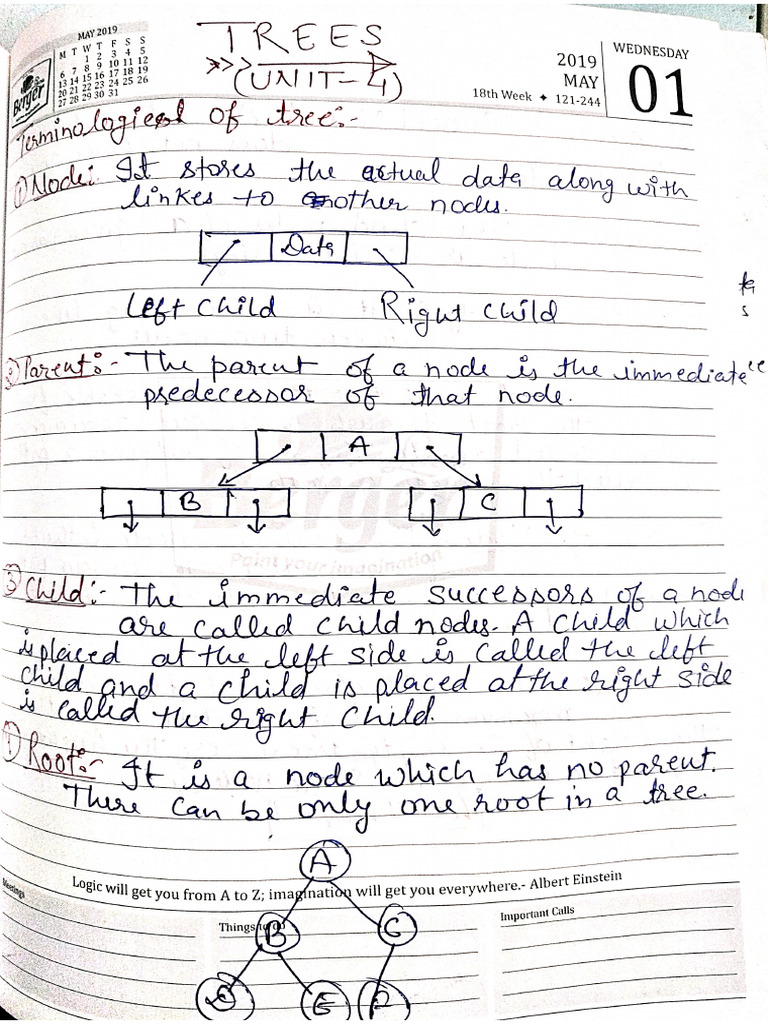 MAY 2019
M T W T F S S
1 2 3 4 5
6 7 8 9 10 11 12
13 14 15 16 17 18 19
20 21 22 23 24 25 26
27 28 29 30 31
Berger
TREES
(UNIT-4)
2019
MAY
18th Week ✦ 121-244
WEDNESDAY
01
Terminologies of tree:-
① Node: It stores the actual data along with
linkes to another nodes.
Data
Left child Right child
② Parent:- The parent of a node is the immediate
predecessor of that node.
A
B C
Berger
Paint your imagination
③ Child:- The immediate successors of a node
are called child nodes. A child which
is placed at the left side is called the left
child and a child is placed at the right side
is called the right child.
Root:- It is a node which has no parent.
There can be only one root in a tree.
A
Logic will get you from A to Z; imagination will get you everywhere.- Albert Einstein
Meetings
Things to do
Important Calls
B C
E